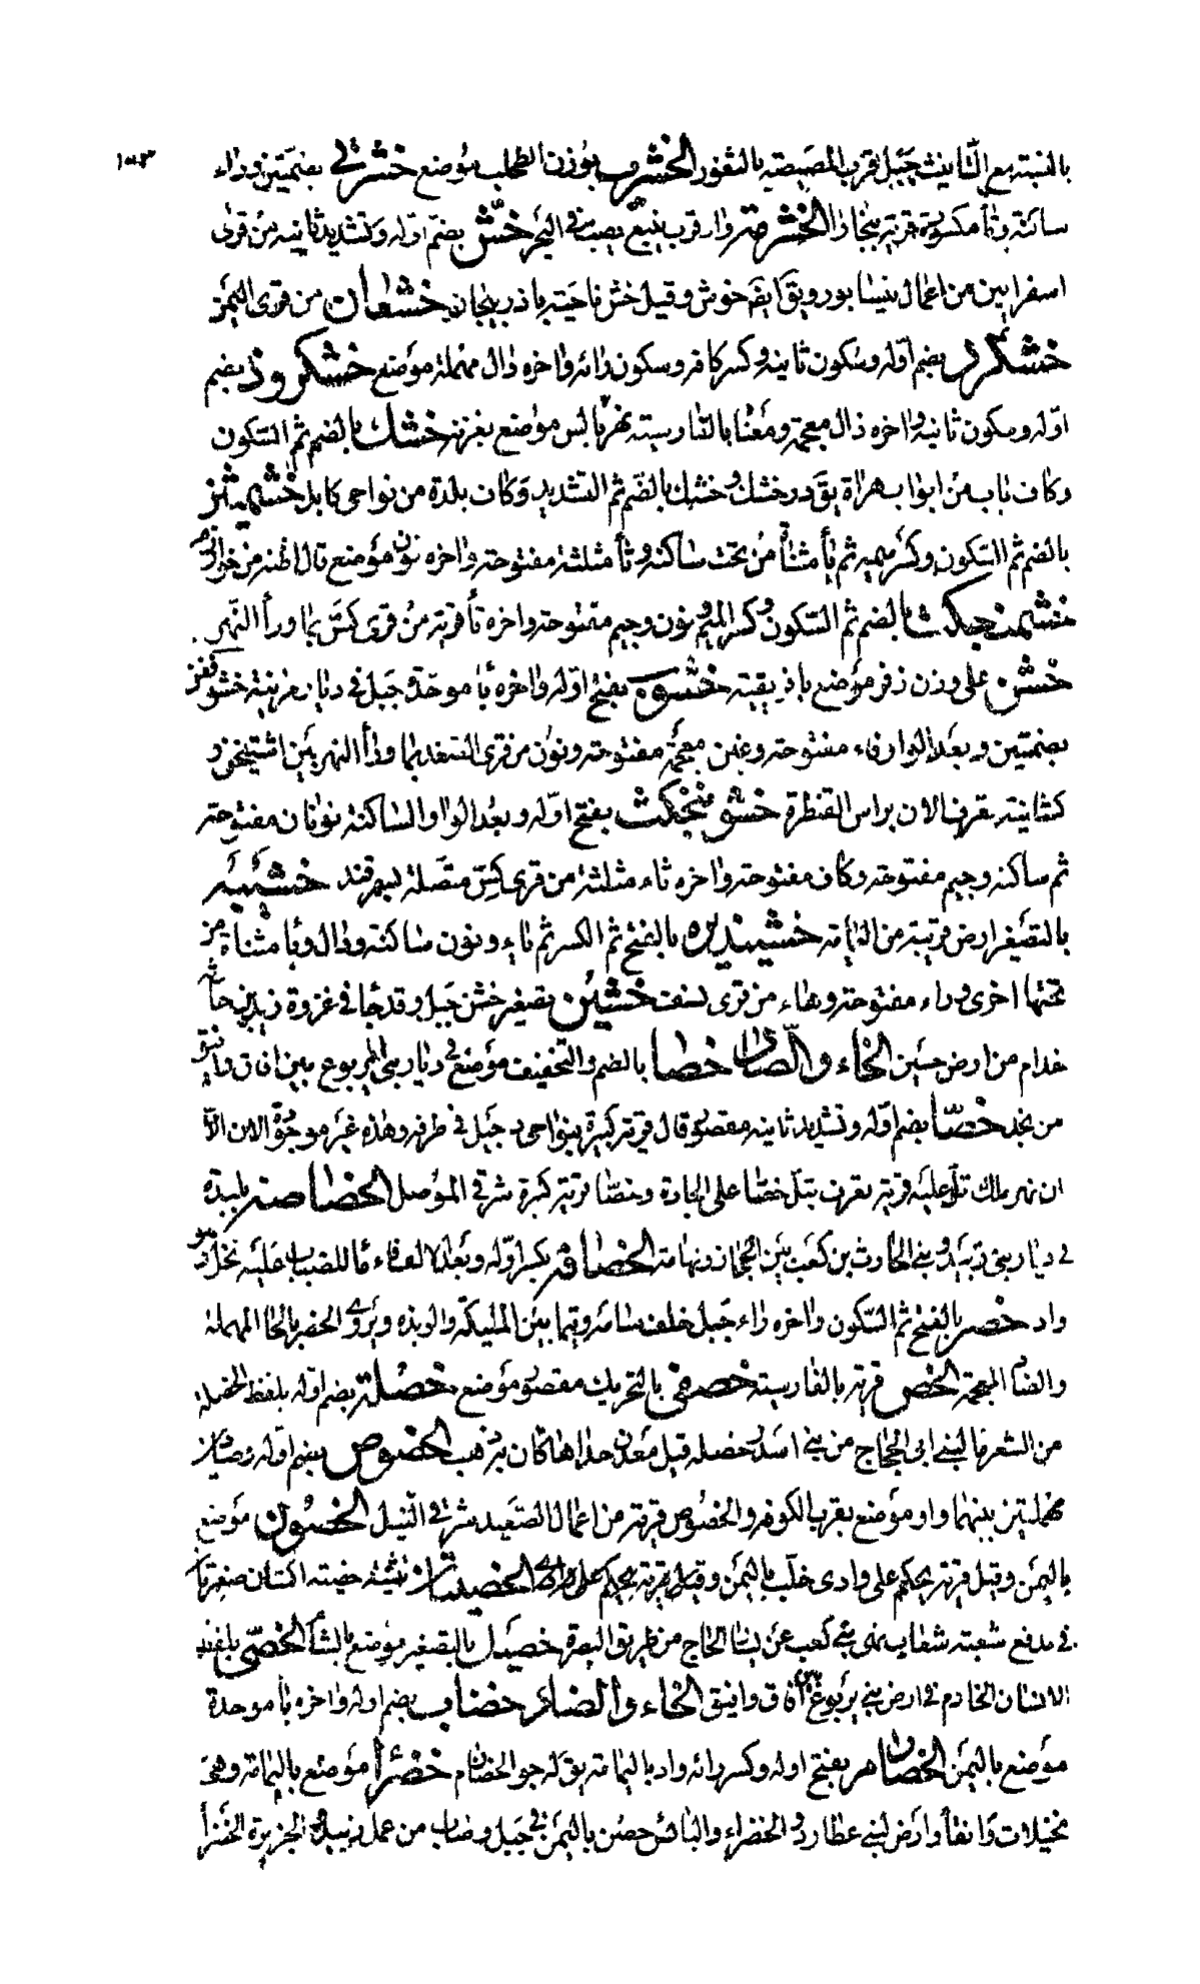 بالنسبة مع التانيث جبيل بقرب المصيصة بالثغور الخشرب بوزن الطحلب موضع خشرتى بضمتين وراء
ساكنة وتا مكسورة قرية ببخارا الخشرمة واد قرب ينبع يصب فى البحر خش بضم اوله وتشديد ثانيه من قرى
اسفرايين من اعمال نيسابور ويق ايضا خوش وقيل خش ناحية باذربيجان خشعان من قرى اليمن
خشكرد بضم اوله وسكون ثانيه وكسر كافه وسكون رائه واخره دال مهملة موضع خشكروذ بضم
اوله وسكون ثانيه واخره ذال معجمة ومعناه بالفارسية نهر يابس موضع بغزنة خشك بالضم ثم السكون
وكاف باب من ابواب هراة يق در خشك وخشك بالضم ثم التشديد وكاف بلدة من نواحى كابل خشميثن
بالضم ثم السكون وكسر ميمه ثم يا مثناة من تحت ساكنه وثا مثلثة مفتوحة واخره نون موضع قال اظنه من خوارزم
خشمنجكت بالضم ثم السكون وكسر الميم ونون وجيم مفتوحة واخره تا قرية من قرى كس بما ورا النهر
خشن على وزن زفر موضع بافريقية خشوب بفتح اوله واخره با موحدة جبل فى ديار مزينة خشوفغن
بضمتين وبعد الواو فاء مفتوحة وغين معجمة مفتوحة ونون من قرى الصغد بما ورا النهر بين اشتيخن و
كشانية تعرف الان براس القنطرة خشونجكث بفتح اوله وبعد الواو الساكنة نونان مفتوحة
ثم ساكنه وجيم مفتوحة وكاف مفتوحة واخره ثاء مثلثة من قرى كس متصلة بسمرقند خشيبة
بالتصغير ارض قريبة من اليمامة خشينديزه بالفتح ثم الكسر ثم ياء ونون ساكنة ودال ويا مثناة من
تحتها اخرى وزاء مفتوحة وهاء من قرى نسف خشين تصغير خشن جبل وقد جا فى غزوة زيد بن حارثة
جذام من ارض خشين الخاء والصاد خصا بالضم والتخفيف موضع فى ديار بنى يربوع بين افاق وافيق
من نجد خصا بضم اوله وتشديد ثانيه مقصور قال قرية كبيرة بنواحى دجيل فى طرفه وهذه غير موجودة الان الا
ان نهر ملك تل عليه قرية يعرف بتل خصا على الجادة وخصا قرية كبيرة شرقى الموصل الخصاصة بليدة
فى ديار بنى زبيد وبنى الحارث بن كعب بين الحجاز وتهامة الخصافة بكسر اوله وبعد الالف فاء ما للضباب عليه نخل
واد خصر بالفتح ثم السكون واخره راء جبل خلف شامة وقيما بين المليكة والربذه ويروى الحضر بالحا المهملة
والضاد المعجمة الخص قرية بالقادسية خصفى بالتحريك مقصور موضع خصلة بضم اوله بلفظ الخصلة
من الشعر ما لبنى ابى الحجاج من بنى اسد وخصلة قيل معدن حذاها كان به ذهب الخصوص بضم اوله وصادين
مهملتين بينهما واو موضع بقرب الكوفة والخصوص قرية من اعمال الصعيد شرقى النيل الخصوف موضع
باليمن وقيل قرية بحكم على وادى خلب باليمن وقيل قرية بحكم على وادى الخصيتان تثنية خصية اكمتان صغيرتان
فى مدفع شعبة شعاب نهى بنى كعب عن يسار الحاج من طريق البصرة خصيل بالتصغير موضع بالشام الخصى بلفظ
الانسان الخادم فى ارض بنى يربوع بين افاق وافيق الخاء والضاد خضاب بضم اوله واخره با موحدة
موضع باليمن الخضارم بفتح اوله وكسر رائه واد باليمامة يق له جو الخضارم خضرا موضع باليمامة وهى
نخيلات وانفا وارض لبنى عطارد والخضراء واليابس حصن باليمن فى جبل وصاب من عمل زبيد والجزيرة الخضرا